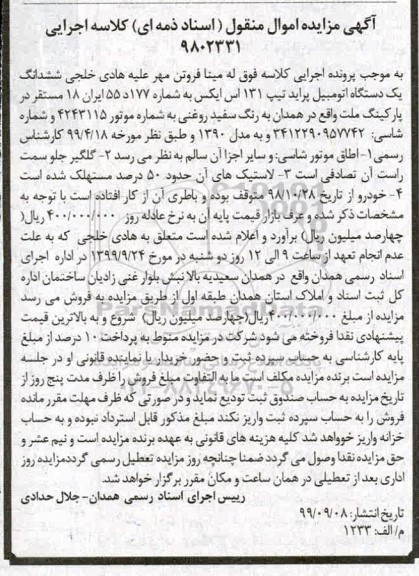 آگهی مزایده اموال منقول (اسناد ذمه ای) کلاسه اجرایی
۹۸۰۲۳۳۱
به موجب پرونده اجرایی کلاسه فوق له مینا فروتن مهر علیه هادی خلجی ششدانگ
یک دستگاه اتومبیل پراید تیپ ۱۳۱ اس ایکس به شماره ۱۷۷د۵۵ ایران ۱۸ مستقر در
پارکینگ ملت واقع در همدان به رنگ سفید روغنی به شماره موتور ۴۲۴۳۱۱۵ و شماره
شاسی: ۳۴۱۲۲۹۰۹۵۷۷۴۲ و به مدل ۱۳۹۰ و طبق نظر مورخه ۹۹/۴/۱۸ کارشناس
رسمی۱-اطاق موتور شاسی:و سایر اجزا آن سالم به نظر می رسد ۲- گلگیر جلو سمت
راست آن تصادفی است ۳- لاستیک های آن حدود ۵۰ درصد مستهلک شده است
۴-خودرو از تاریخ ۹۸/۰۷/۲۸ متوقف بوده و باطری آن از کار افتاده است با توجه به
مشخصات ذکر شده و عرف بازار قیمت پایه آن به نرخ عادله روز ۴۰۰/۰۰۰/۰۰۰ ریال(
چهارصد میلیون ریال) برآورد و اعلام شده است متعلق به هادی خلجی که به علت
عدم انجام تعهد از ساعت ۹ الی ۱۲ روز دو شنبه در مورخ ۱۳۹۹/۹/۲۴ در اداره اجرای
اسناد رسمی همدان واقع در همدان سعیدیه بالا نبش بلوار غنی زادیان ساختمان اداره
کل ثبت اسناد و املاک استان همدان طبقه اول از طریق مزایده به فروش می رسد
مزایده از مبلغ ۴۰۰/۰۰۰/۰۰۰ریال(چهارصد میلیون ریال) شروع و به بالاترین قیمت
پیشنهادی نقدا فروخته می شود شرکت در مزایده منوط به پرداخت ۱۰ درصد از مبلغ
پایه کارشناسی به حساب سپرده ثبت و حضور خریدار یا نماینده قانونی او در جلسه
مزایده است برنده مزایده مکلف است ما به التفاوت مبلغ فروش را ظرف مدت پنج روز از
تاریخ مزایده به حساب صندوق ثبت تودیع نماید و در صورتی که ظرف مهلت مقرر مانده
فروش را به حساب سپرده ثبت واریز نکند مبلغ مذکور قابل استرداد نبوده و به حساب
خزانه واریز خوواهد شد کلیه هزینه های قانونی به عهده برنده مزایده است و نیم عشر و
حق مزایده نقدا وصول می گردد ضمنا چنانچه روز مزایده تعطیل رسمی گرددمزایده روز
اداری بعد از تعطیلی در همان ساعت و مکان مقرر برگزار خواهد شد.
رییس اجرای اسناد رسمی همدان- جلال حدادی
تاریخ انتشار: ۹۹/۰۹/۰۸
م/الف: ۱۲۳۳